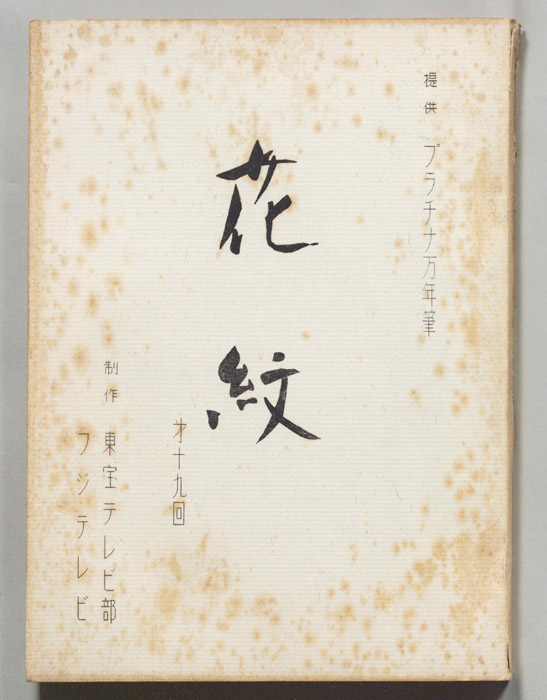 提供 プラチナ万年筆
花紋
才十九回
制作 東宝テレビ部
フジテレビ